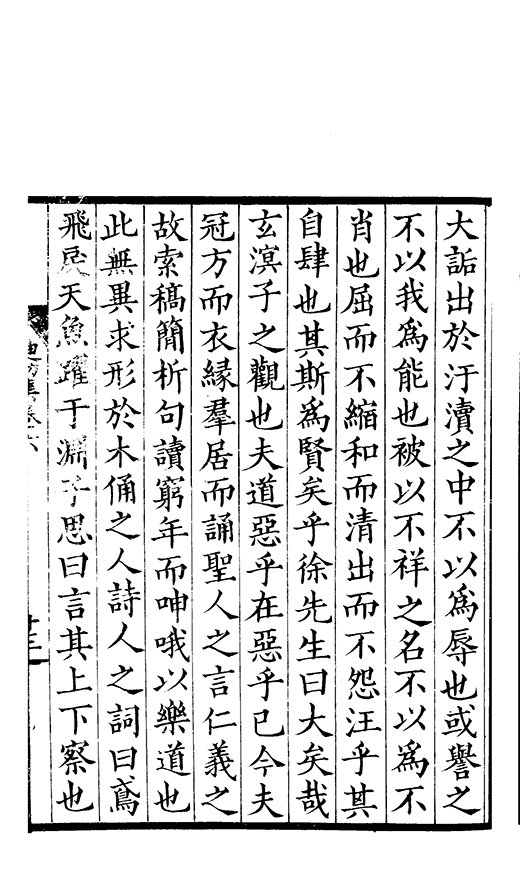 大詬出於汙瀆之中不以爲辱也或譽之
不以我爲能也被以不祥之名不以爲不
肖也屈而不縮和而清出而不怨汪乎其
自肆也其斯爲賢矣乎徐先生曰大矣哉
玄溟子之觀也夫道惡乎在惡乎已今夫
冠方而衣緣羣居而誦聖人之言仁義之
故索稿簡析句讀窮年而呻哦以樂道也
此無異求形於木俑之人詩人之詞曰鳶
飛戾天魚躍于淵子思曰言其上下察也